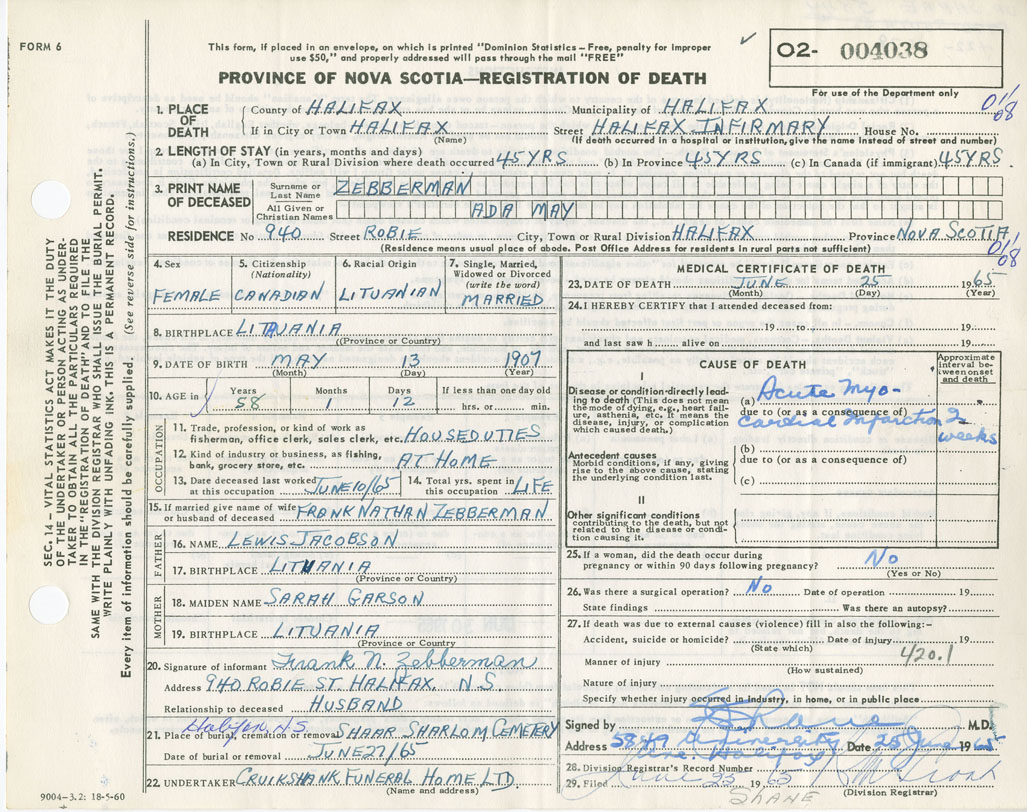 FORM 6
This form, if placed in an envelope, on which is printed "Dominion Statistics – Free, penalty for improper
use $50," and properly addressed will pass through the mail "FREE"
✓
O2- 004038
For use of the Department only
PROVINCE OF NOVA SCOTIA—REGISTRATION OF DEATH
011/08
1. PLACE OF DEATH { County of HALIFAX Municipality of HALIFAX
If in City or Town HALIFAX Street HALIFAX INFIRMARY House No.
(Name) (If death occurred in a hospital or institution, give the name instead of street and number)
2. LENGTH OF STAY (in years, months and days)
(a) In City, Town or Rural Division where death occurred 45 YRS (b) In Province 45 YRS (c) In Canada (if immigrant) 45 YRS.
3. PRINT NAME OF DECEASED
Surname or Last Name ZEBBERMAN
All Given or Christian Names ADA MAY
RESIDENCE No 940 Street ROBIE City, Town or Rural Division HALIFAX Province NOVA SCOTIA
(Residence means usual place of abode. Post Office Address for residents in rural parts not sufficient)
011/08
SEC. 14 – VITAL STATISTICS ACT MAKES IT THE DUTY
OF THE UNDERTAKER OR PERSON ACTING AS UNDER-
TAKER TO OBTAIN ALL THE PARTICULARS REQUIRED
IN THE "REGISTRATION OF DEATH" AND TO FILE THE
SAME WITH THE DIVISION REGISTRAR WHO SHALL ISSUE THE BURIAL PERMIT.
WRITE PLAINLY WITH UNFADING INK. THIS IS A PERMANENT RECORD.
Every item of information should be carefully supplied. (See reverse side for instructions.)
4. Sex FEMALE
5. Citizenship (Nationality) CANADIAN
6. Racial Origin LITUANIAN
7. Single, Married, Widowed or Divorced (write the word) MARRIED
8. BIRTHPLACE LITAUANIA
(Province or Country)
9. DATE OF BIRTH MAY 13 1907
(Month) (Day) (Year)
10. AGE in { Years 58 Months 1 Days 12 If less than one day old
hrs. or min.
OCCUPATION
11. Trade, profession, or kind of work as
fisherman, office clerk, sales clerk, etc. HOUSEDUTIES
12. Kind of industry or business, as fishing,
bank, grocery store, etc. AT HOME
13. Date deceased last worked at this occupation JUNE 10/65 14. Total yrs. spent in this occupation LIFE
15. If married give name of wife
or husband of deceased FRANK NATHAN ZEBBERMAN
FATHER
16. NAME LEWIS JACOBSON
17. BIRTHPLACE LITUANIA
(Province or Country)
MOTHER
18. MAIDEN NAME SARAH GARSON
19. BIRTHPLACE LITUANIA
(Province or Country)
20. Signature of informant Frank N. Zebberman
Address 940 ROBIE ST. HALIFAX N.S.
Relationship to deceased HUSBAND
Halifax, N.S.
21. Place of burial, cremation or removal SHAAR SHARLOM CEMETERY
Date of burial or removal JUNE 27/65
22. UNDERTAKER CRUIKSHANK FUNERAL HOME LTD.
(Name and address)
9004–3.2: 18-5-60
MEDICAL CERTIFICATE OF DEATH
23. DATE OF DEATH JUNE 25 1965
(Month) (Day) (Year)
24. I HEREBY CERTIFY that I attended deceased from:
19 to 19
and last saw h alive on 19
CAUSE OF DEATH
Approximate interval between onset and death
I
Disease or condition directly lead-
ing to death (This does not mean
the mode of dying, e.g., heart fail-
ure, asthenia, etc. It means the
disease, injury, or complication
which caused death.)
(a) Acute Myo-
due to (or as a consequence of)
cardial Infarction 2 weeks
(b)
due to (or as a consequence of)
(c)
Antecedent causes
Morbid conditions, if any, giving
rise to the above cause, stating
the underlying condition last.
II
Other significant conditions
contributing to the death, but not
related to the disease or condi-
tion causing it.
25. If a woman, did the death occur during
pregnancy or within 90 days following pregnancy? No
(Yes or No)
26. Was there a surgical operation? No Date of operation 19
State findings Was there an autopsy?
27. If death was due to external causes (violence) fill in also the following:–
Accident, suicide or homicide? Date of injury 19
(State which)
420.1
Manner of injury
(How sustained)
Nature of injury
Specify whether injury occurred in industry, in home, or in public place
Signed by Shane M.D.
Address 5849 University Ave. Halifax Date 25 June 1965
28. Division Registrar's Record Number
29. Filed June 25 1965
(Division Registrar)
SHANE